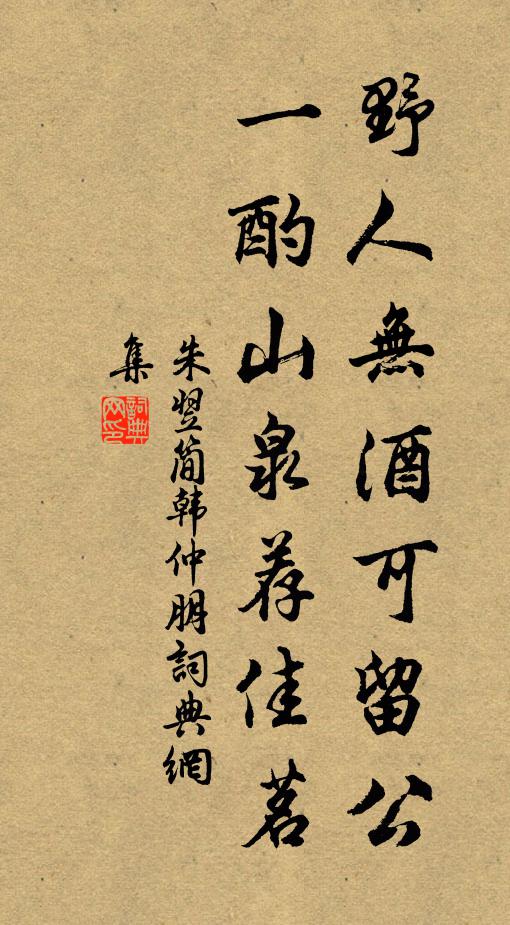 野人無酒可留公
一酌山泉荐佳茗
朱翌简韩仲朋詞典網
集
詞典
网印